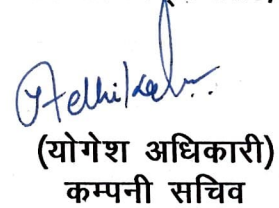 (योगेश अधिकारी)
कम्पनी सचिव